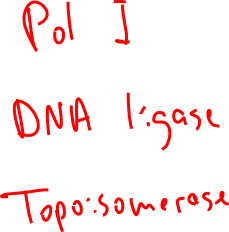 Pol I
DNA ligase
Topoisomerase